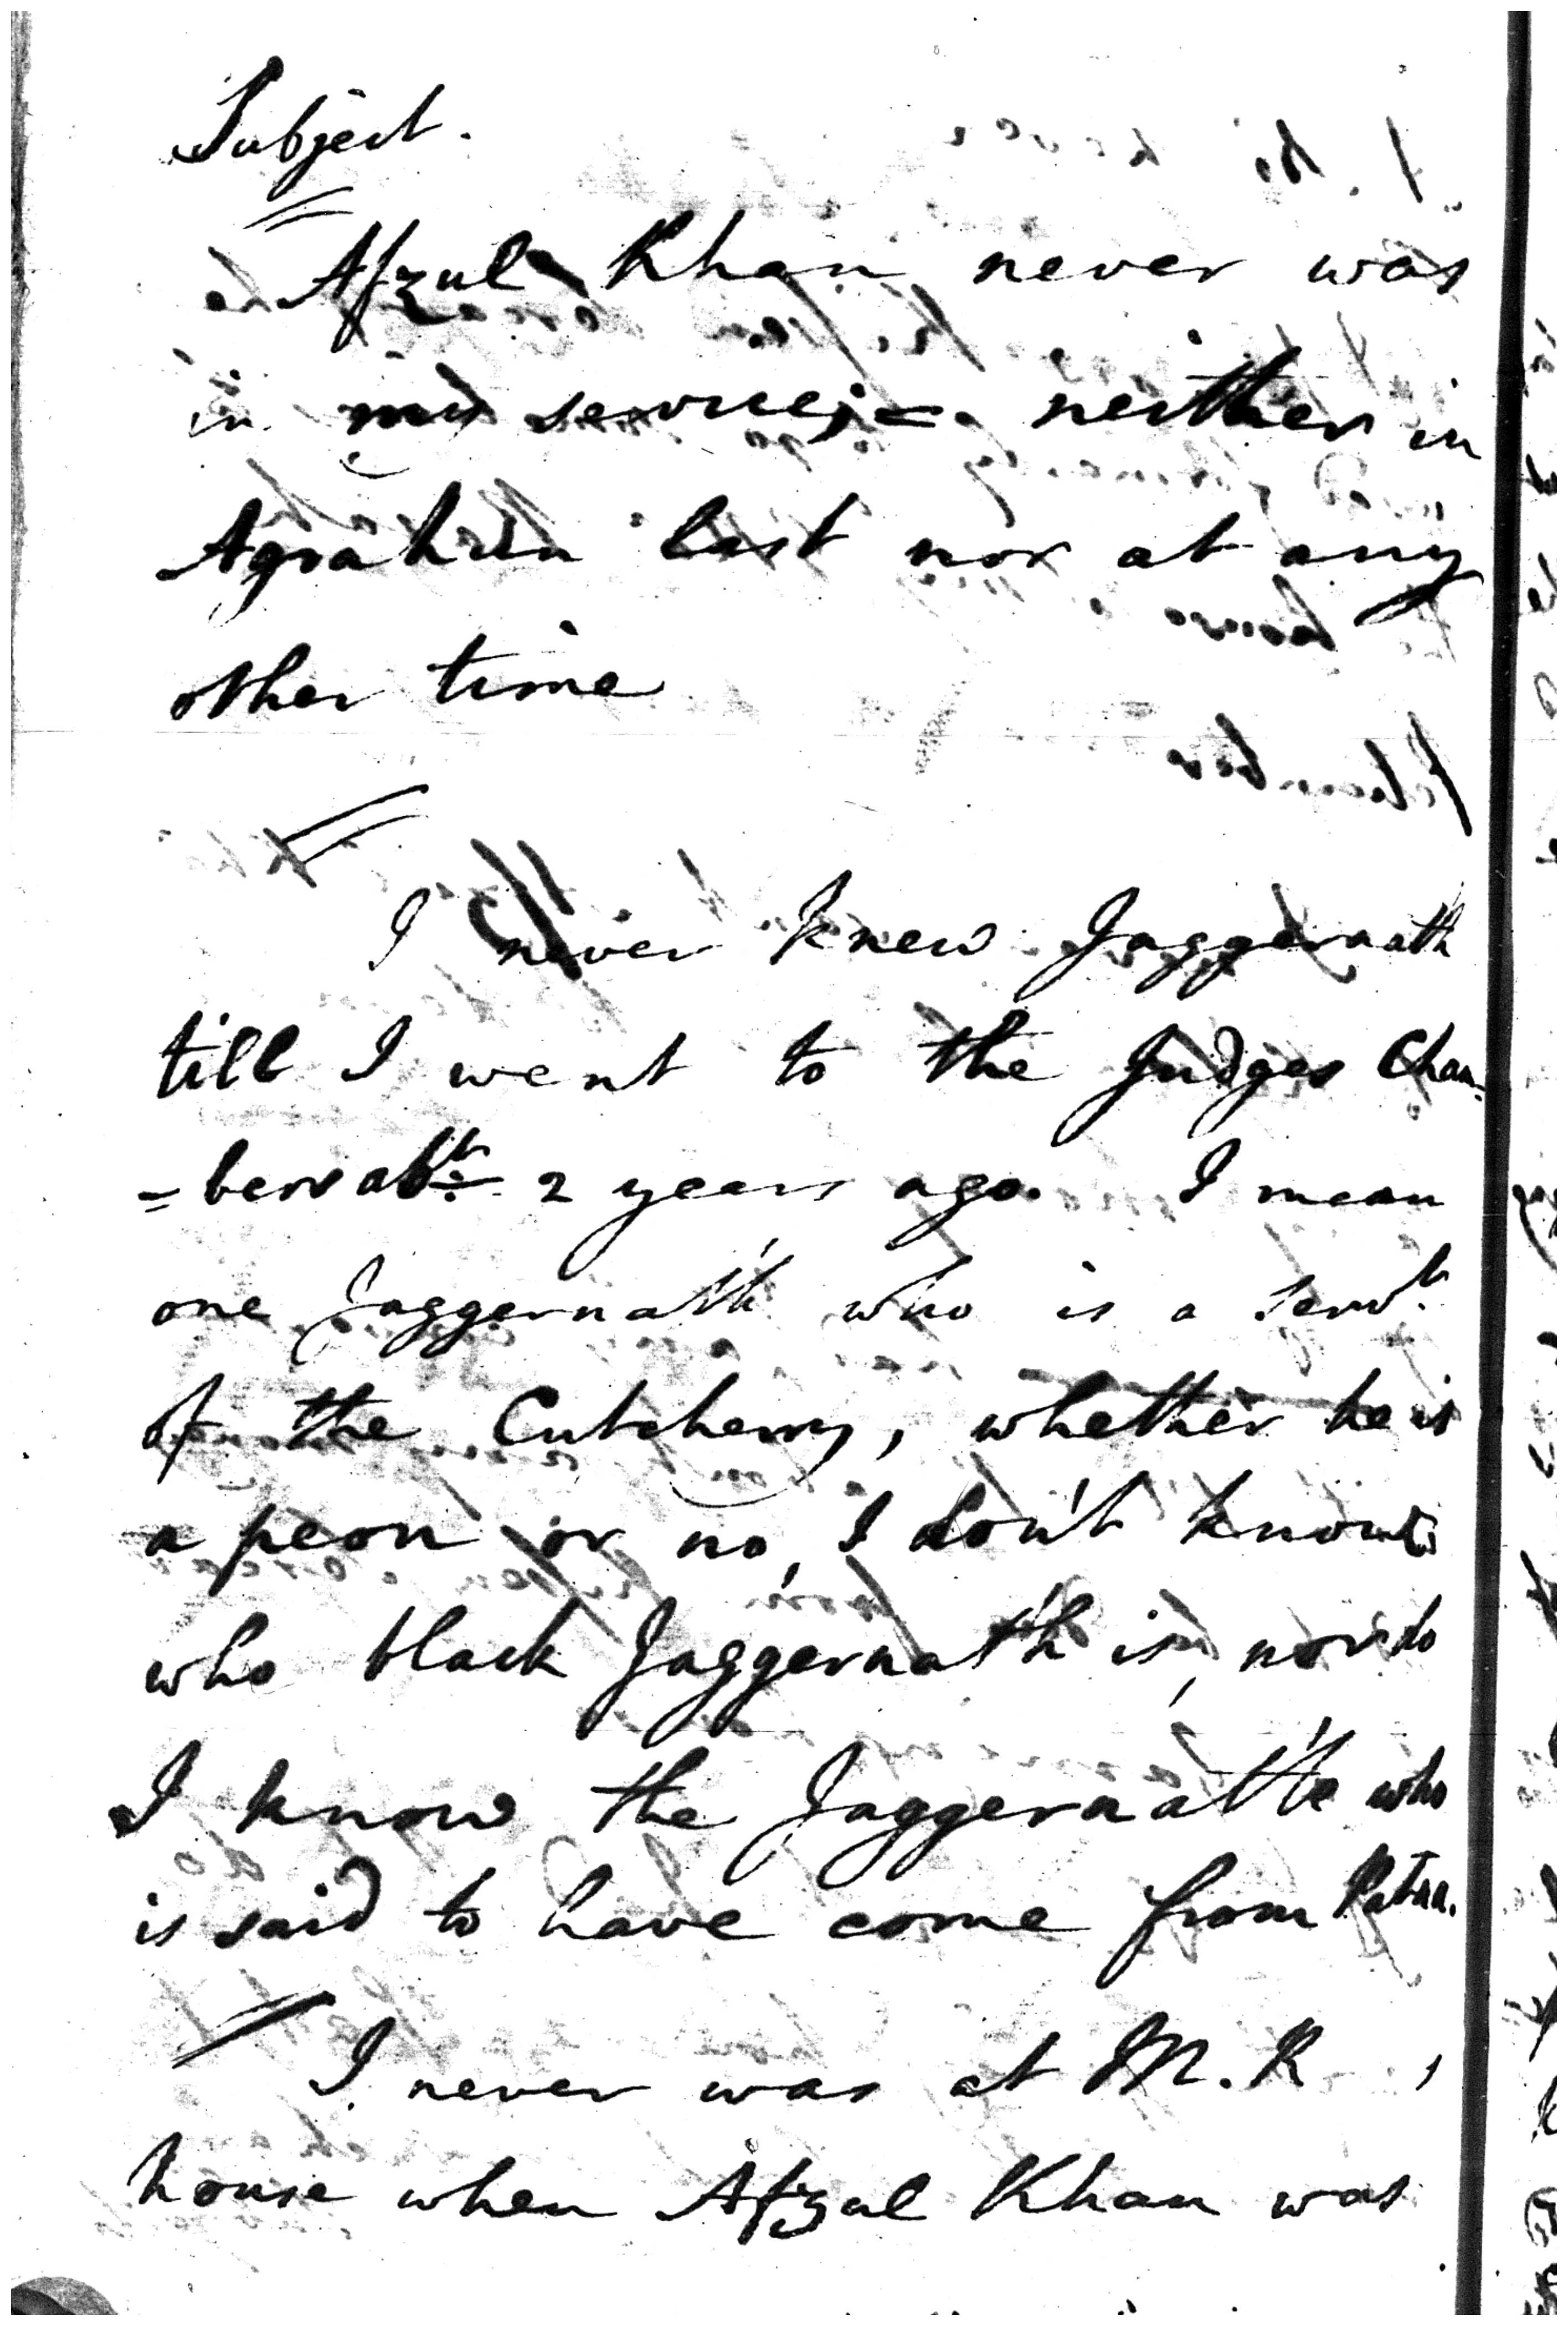 Subject.
Afzul Khan never was
in my service; neither in
Agrahun last nor at any
other time
I never knew Jaggernath
till I went to the Judges Cham-
=bers abt. 2 years ago. I mean
one Jaggernath who is a servt.
of the Cutcherry, whether he is
a peon or no, I don't know
who black Jaggernath is, nor do
I know the Jaggernath who
is said to have come from Patna.
I never was at M. R
house when Afzul Khan was